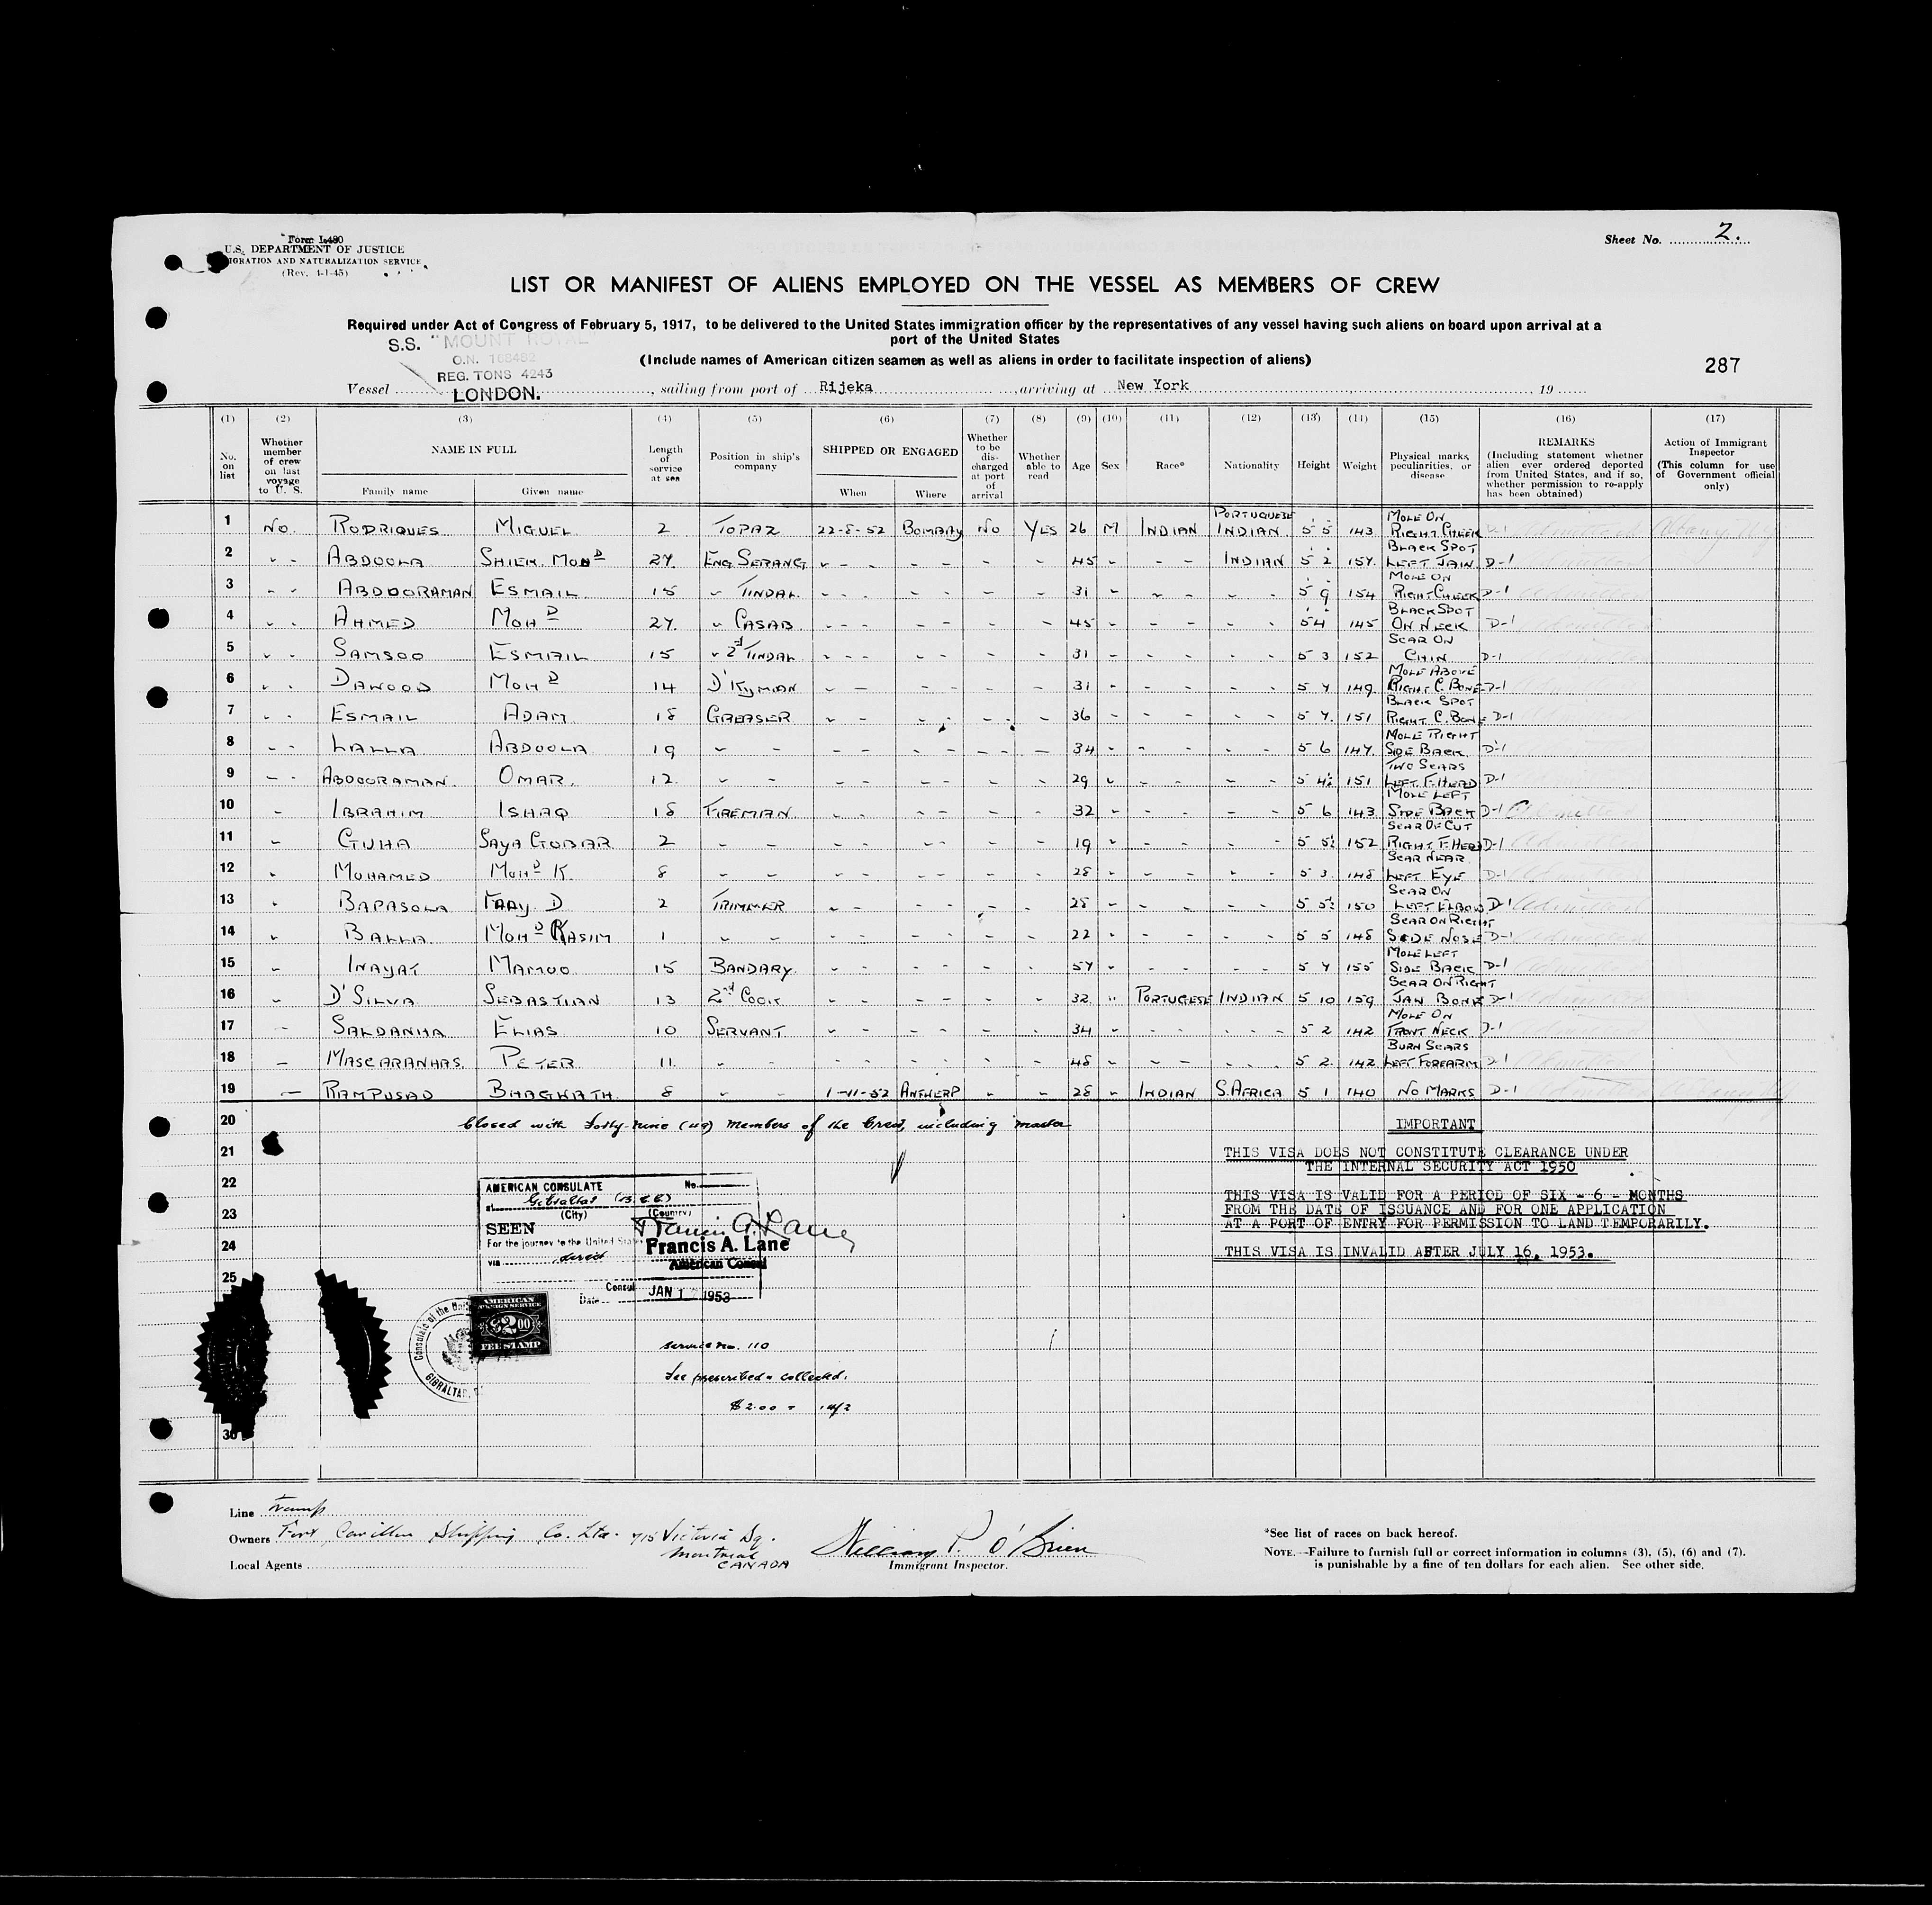 Form I-480
U.S. DEPARTMENT OF JUSTICE
IGRATION AND NATURALIZATION SERVICE
(Rev. 4-1-45)
Sheet No. 2.
LIST OR MANIFEST OF ALIENS EMPLOYED ON THE VESSEL AS MEMBERS OF CREW
Required under Act of Congress of February 5, 1917, to be delivered to the United States immigration officer by the representatives of any vessel having such aliens on board upon arrival at a
port of the United States
S.S. "MOUNT ROYAL
(Include names of American citizen seamen as well as aliens in order to facilitate inspection of aliens)
O.N. 168482
REG. TONS 4243
287
Vessel LONDON. , sailing from port of Rijeka , arriving at New York , 19
(1) (2) (3) (4) (5) (6) (7) (8) (9) (10) (11) (12) (13) (14) (15) (16) (17)
No. on list
Whether member of crew on last voyage to U. S.
NAME IN FULL
Family name Given name
Length of service at sea
Position in ship's company
SHIPPED OR ENGAGED
When Where
Whether to be discharged at port of arrival
Whether able to read
Age
Sex
Race*
Nationality
Height
Weight
Physical marks, peculiarities, or disease
REMARKS
(Including statement whether alien ever ordered deported from United States, and if so, whether permission to re-apply has been obtained)
Action of Immigrant Inspector
(This column for use of Government official only)
1 No. RODRIQUES MIGUEL 2 TOPAZ 22-8-52 BOMBAY NO YES 26 M INDIAN PORTUGUESE INDIAN 5 5 143 MOLE ON RIGHT CHEEK D-1 Admitted Albany NY
2 " " ABDOOLA SHIEK MOHD 27. ENG SERANG " - - - - - - 45 " - - INDIAN 5 2 157. BLACK SPOT LEFT JAIN D-1
3 " " ABDOORAMAN ESMAIL 15 " TINDAL - - - - - - - 31 " - - - - 5 9 154 MOLE ON RIGHT CHEEK D-1
4 " " AHMED MOHD 27. " CASAB - - - - - - - 45 " - - - - 5 4 145 BLACK SPOT ON NECK D-1
5 " " SAMSOO ESMAIL 15 " 2d TINDAL - - - - - - - 31 - - - - - 5 3 152 SCAR ON CHIN D-1
6 " " DAWOOD MOHD 14 D'KYMAN - - - - - - 31 - - - - - 5 7 149 MOLE ABOVE RIGHT C. BONE D-1
7 " " ESMAIL ADAM 18 GREASER - - - - - - 36 - - - - - 5 7. 151 BLACK SPOT RIGHT C. BONE D-1
8 " " LALLA ABDOOLA 19 - - - - - - - - 34 - - - - - 5 6 147. MOLE RIGHT SIDE BACK D-1
9 - - ABDOORAMAN. OMAR. 12. - - - - - - - - 29 " - - - - 5 4½ 151 TWO SCARS LEFT F.HEAD D-1
10 - IBRAHIM ISHAQ 18 FIREMAN - - - - - - 32 - - - - - 5 6 143 MOLE LEFT SIDE BACK D-1 Admitted
11 - GUHA SAYA GOBAR 2 - - - - - - - - 19 " - - - - 5 5½ 152 SCAR OF CUT RIGHT F.HEAD D-1 Admitted
12 " MOHAMED MOHD K. 8 - - - - - - - - 28 - - - - - 5 3 148 SCAR NEAR LEFT EYE D-1
13 " BAPASOLA FRAY. D 2 TRIMMER - - - - - - 28 - - - - - 5 5½ 150 SCAR ON LEFT ELBOW D-1 Admitted
14 " BALLA. MOHD KASIM 1 - - - - - - - - 22 - - - - - 5 5 148 SCAR ON RIGHT SIDE NOSE D-1 Admitted
15 - INAYAT MAMOO 15 BANDARY. - - - - - - 57 - - - - - 5 7 155 MOLE LEFT SIDE BACK D-1
16 " D'SILVA SEBASTIAN 13 2nd COOK - - - - - - 32. " PORTUGESE INDIAN 5 10 159 SCAR ON RIGHT JAW BONE D-1
17 - SALDANHA ELIAS 10 SERVANT " - - - - - 34 - - - - - 5 2 142 MOLE ON FRONT NECK D-1
18 - MASCARANHAS. PETER 11. - - - - - - - 48 - - - - - 5 2. 142 BURN SCARS LEFT FOREARM D-1 Admitted
19 - RAMPUSAD BHAGWATH 8 " - 1-11-52 ANTWERP " " 28 " INDIAN S.AFRICA 5 1 140 NO MARKS D-1
20 Closed with Forty-nine (49) Members of the Crew, including master
21
22
23
24
25
30
IMPORTANT
THIS VISA DOES NOT CONSTITUTE CLEARANCE UNDER
THE INTERNAL SECURITY ACT 1950
THIS VISA IS VALID FOR A PERIOD OF SIX - 6 - MONTHS
FROM THE DATE OF ISSUANCE AND FOR ONE APPLICATION
AT A PORT OF ENTRY FOR PERMISSION TO LAND TEMPORARILY.
THIS VISA IS INVALID AFTER JULY 16, 1953.
AMERICAN CONSULATE No.
at Gibraltar
(City) (Country)
SEEN Francis A. Lane
For the journey to the United States Francis A. Lane
via direct American Consul
Consul
Date JAN 17 1953
AMERICAN
FOREIGN SERVICE
$2.00
FEE STAMP
Consulate of the Unit
GIBRALTAR
service no. 110
Fee prescribed & collected.
$2.00 = 14/2
Line Tramp
Owners Fort Cavillon Shipping Co. Ltd. 715 Victoria Sq.
Montreal
CANADA
Local Agents
William P. O'Brien
Immigrant Inspector.
*See list of races on back hereof.
NOTE.—Failure to furnish full or correct information in columns (3), (5), (6) and (7).
is punishable by a fine of ten dollars for each alien. See other side.